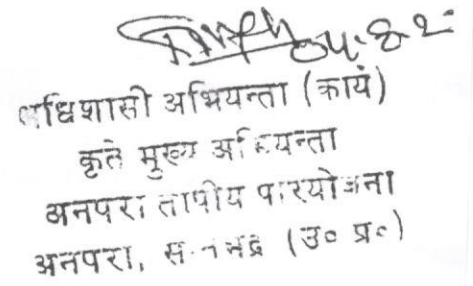 04.8.2
अधिशासी अभियन्ता (कार्य)
कृते मुख्य अभियन्ता
अनपरा तापीय परियोजना
अनपरा, सोनभद्र (उ० प्र०)